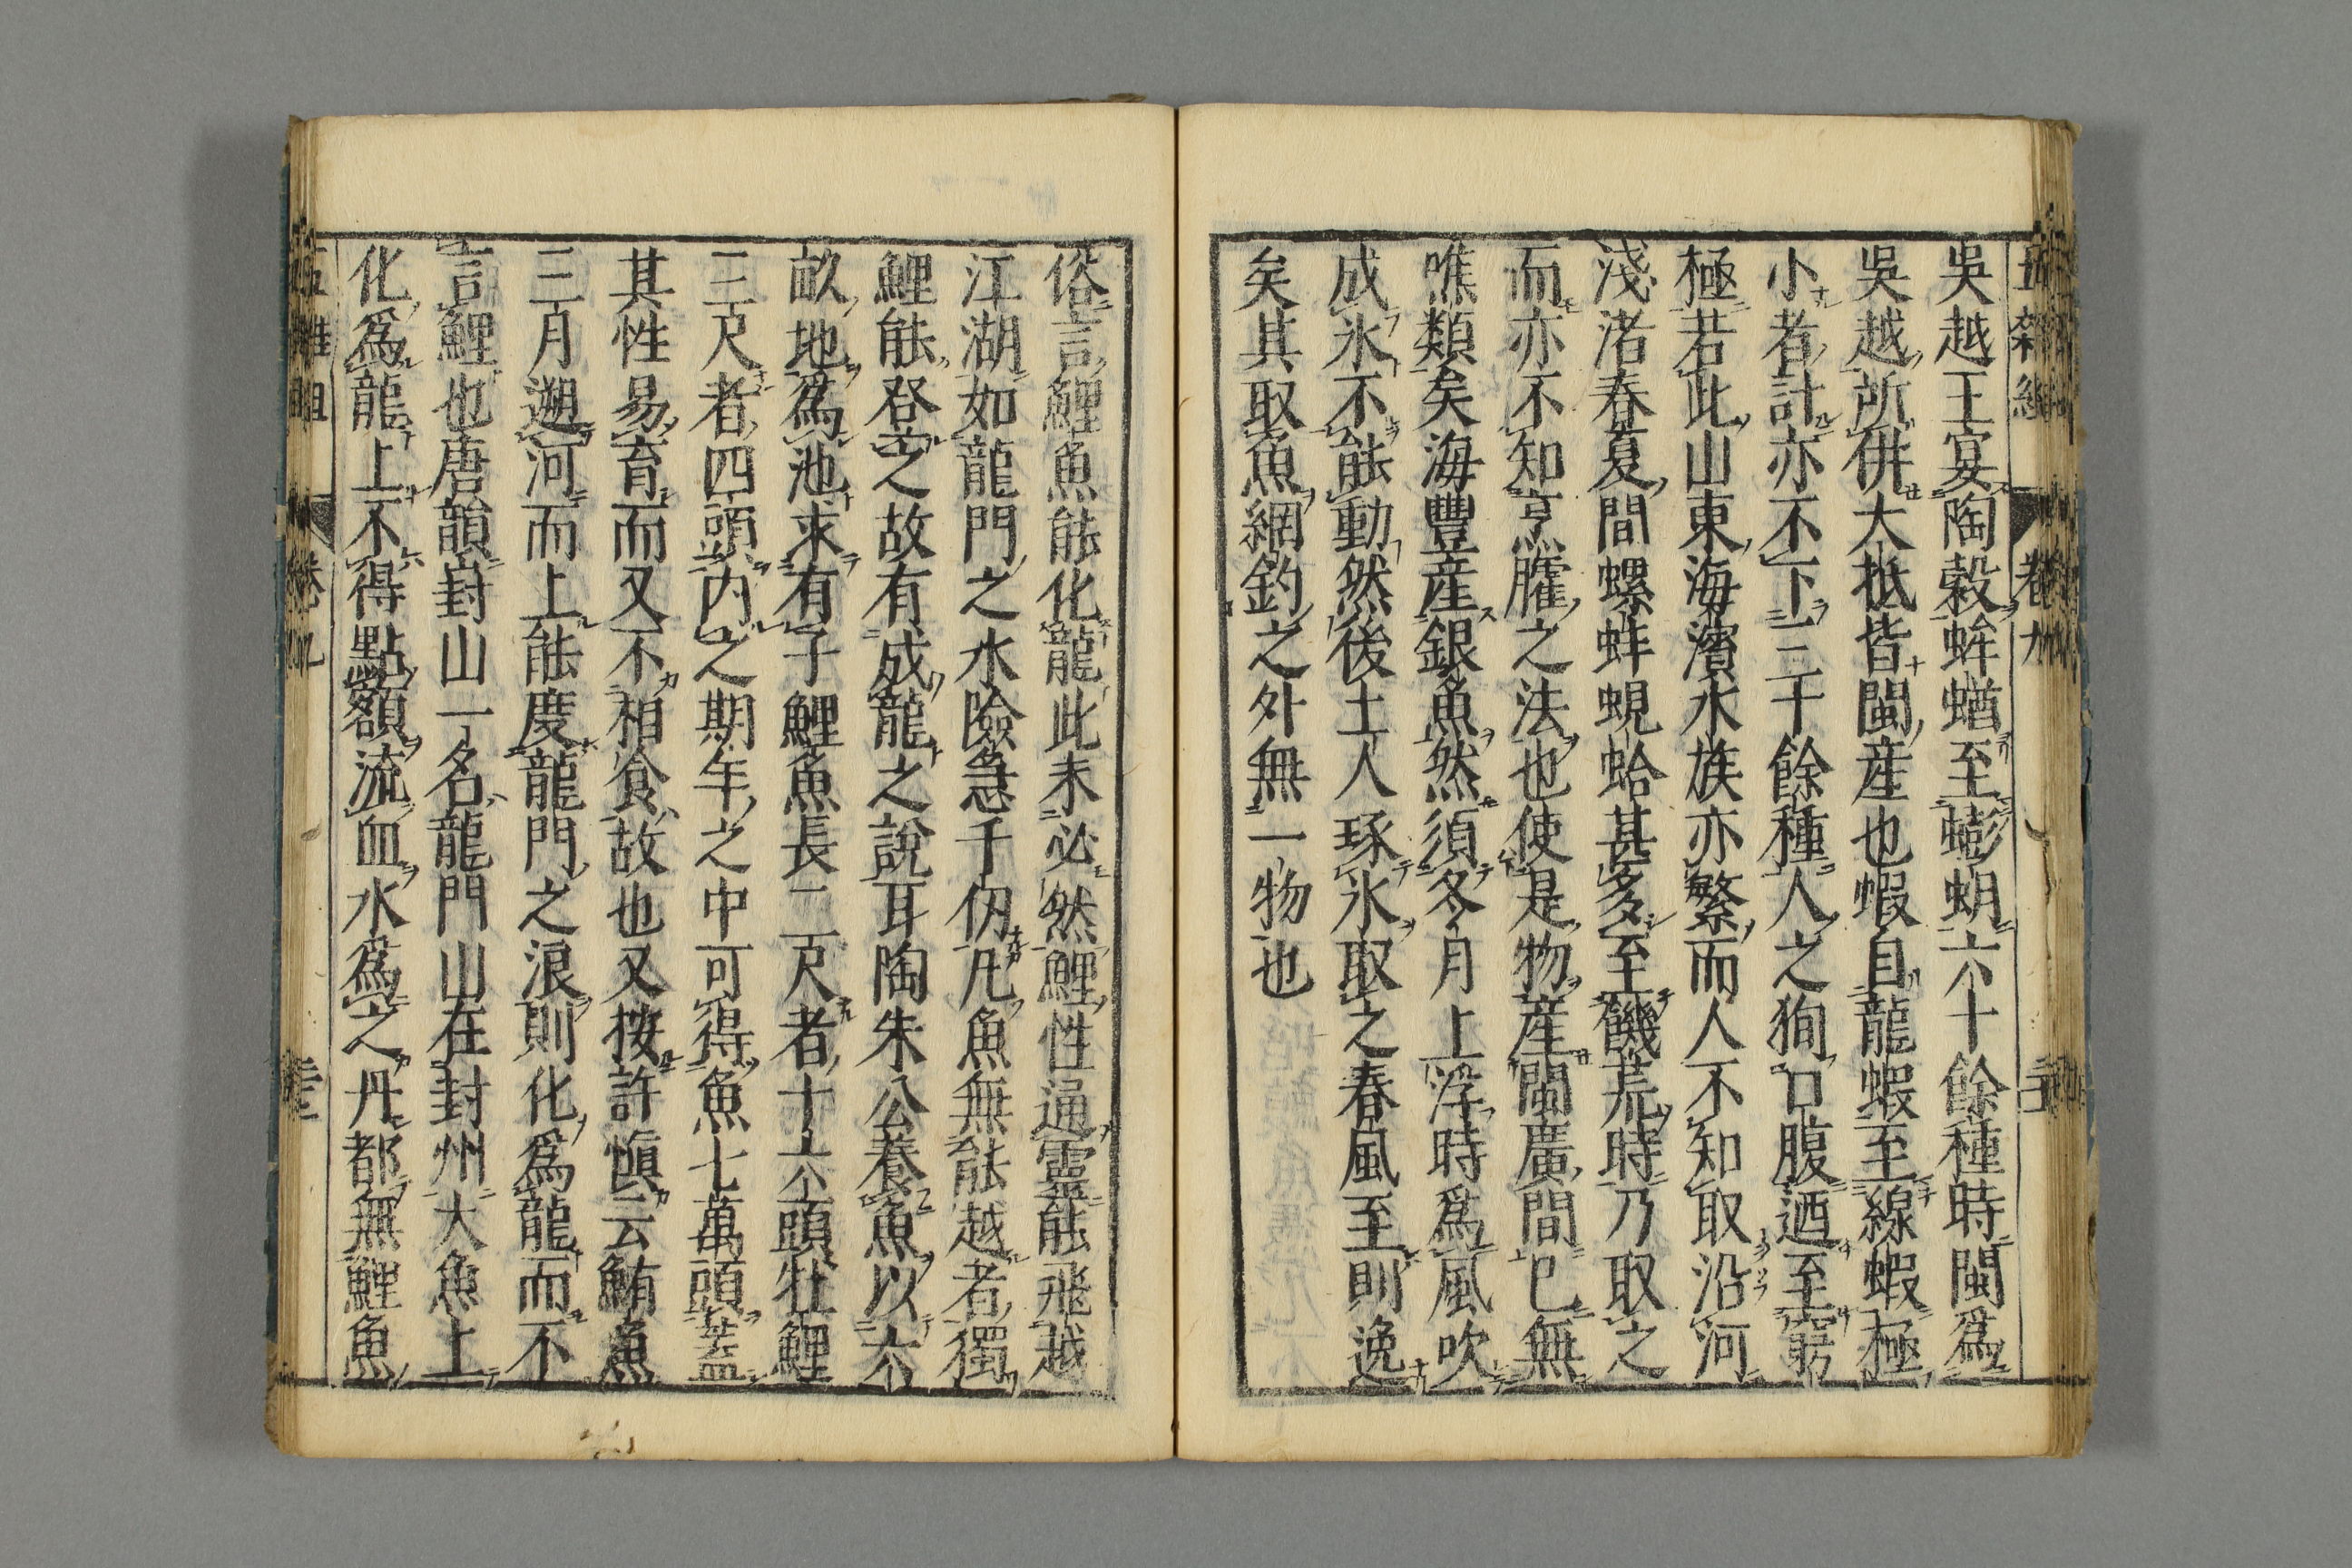 五雜組 卷九
吳越王宴陶穀蛑蝤至蟛蚏六十餘種時閩爲
吳越所併大抵皆閩産也蝦自龍蝦至線蝦極
小者計亦不下二十餘種人之狥口腹迺至窮
極若此山東海濱水族亦繁而人不知取沿河
淺渚春夏間螺蚌蜆蛤甚多至饑荒時乃取之
而亦不知烹臛之法也使是物産閩廣間已無
噍類矣海豐産銀魚然須冬月上浮時爲風吹
成氷不能動然後土人琢氷取之春風至則逸
矣其取魚網釣之外無一物也
俗言鯉魚能化龍此未必然鯉性通靈能飛越
江湖如龍門之水險急千仞凡魚無能越者獨
鯉能登之故有成龍之說耳陶朱公養魚以六
畝地爲池求有子鯉魚長二尺者十六頭牡鯉
三尺者四頭内之期年之中可得魚七萬頭蓋
其性易育而又不相食故也又按許愼云鮪魚
三月遡河而上能度龍門之浪則化爲龍而不
言鯉也唐韻封山一名龍門山在封州大魚上
化爲龍上不得點額流血水爲之丹都無鯉魚
五雜組 卷九